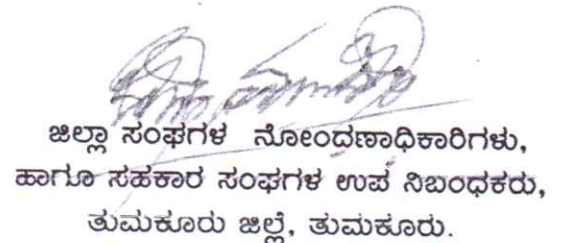 ಜಿಲ್ಲಾ ಸಂಘಗಳ ನೋಂದಣಾಧಿಕಾರಿಗಳು,
ಹಾಗೂ ಸಹಕಾರ ಸಂಘಗಳ ಉಪ ನಿಬಂಧಕರು,
ತುಮಕೂರು ಜಿಲ್ಲೆ, ತುಮಕೂರು.